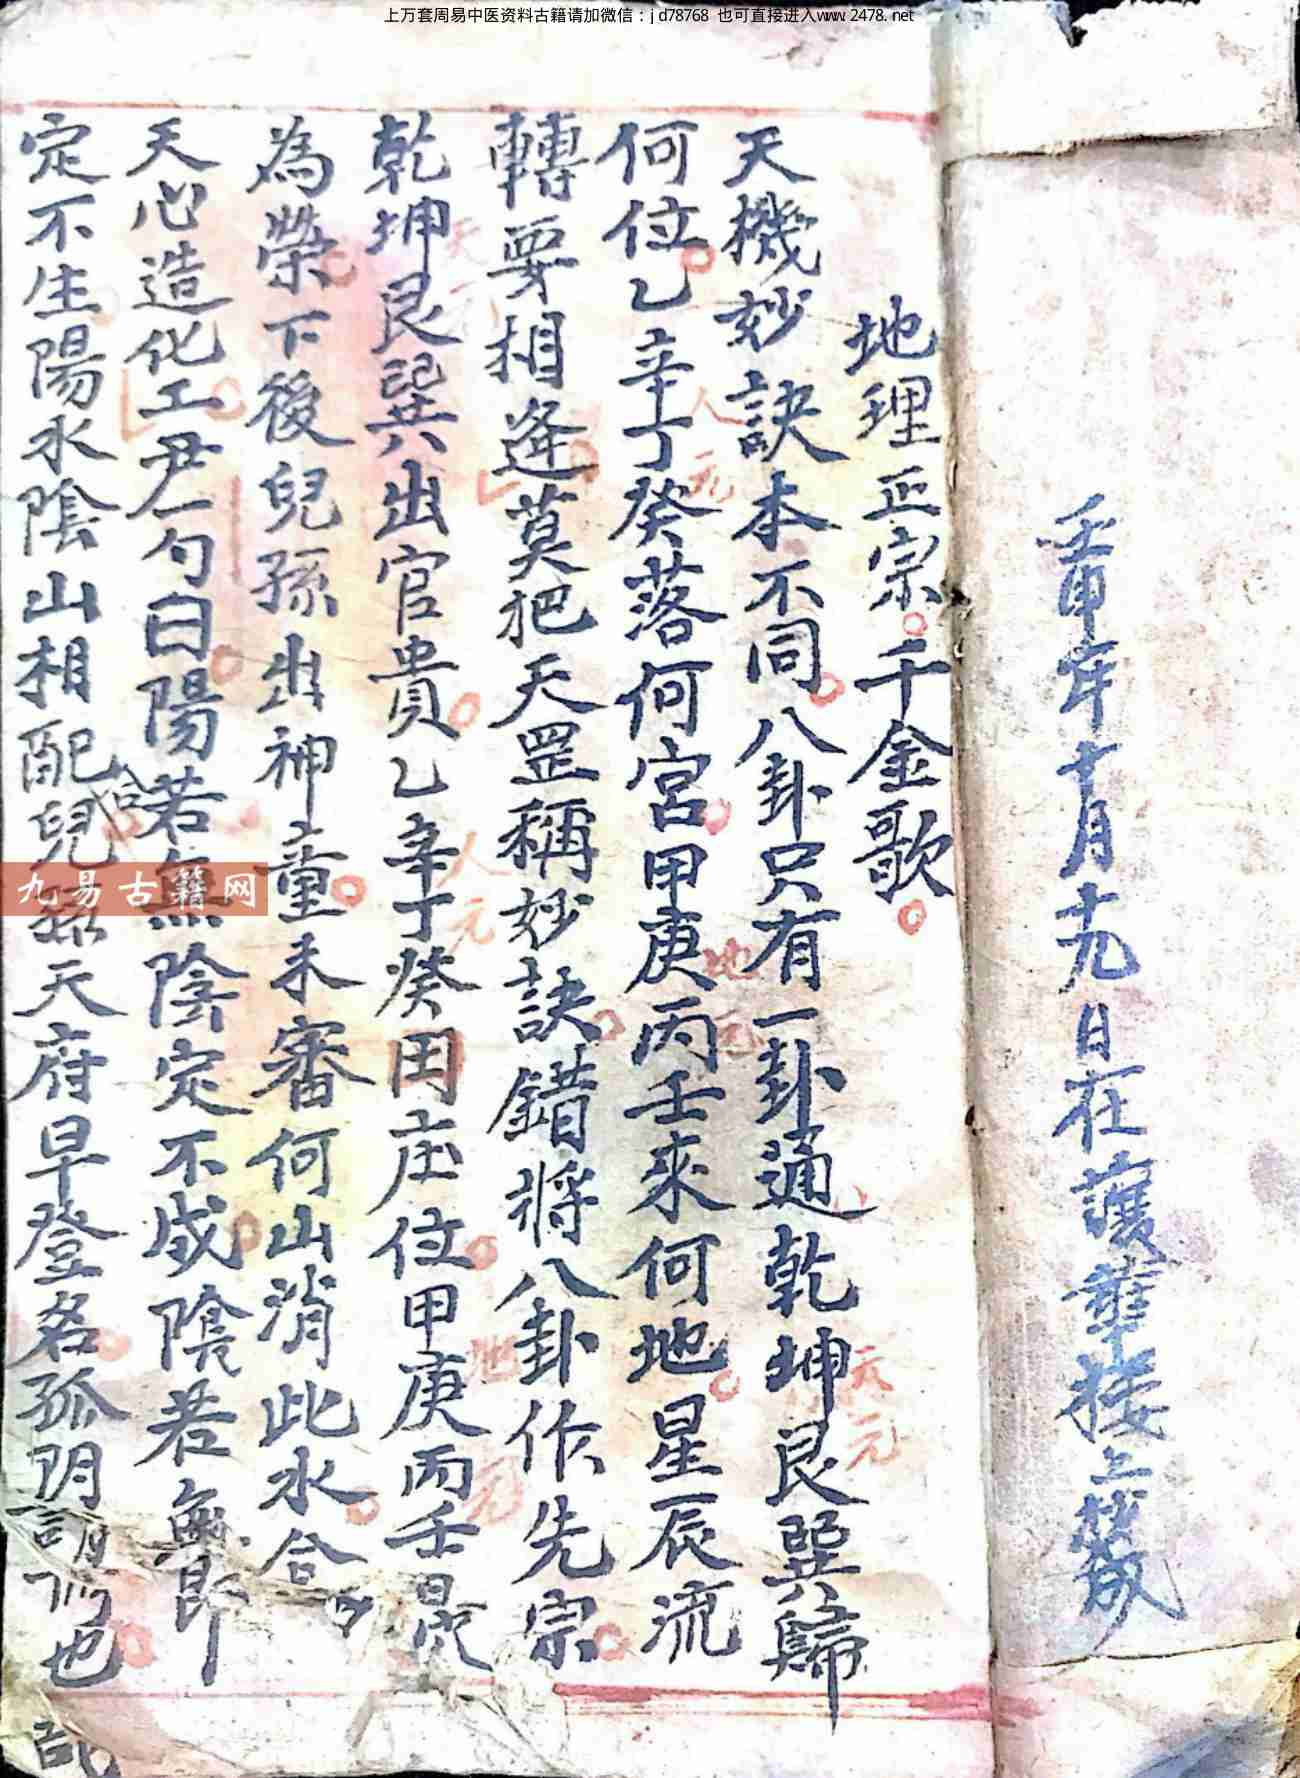 上万套周易中医资料古籍请加微信：jd78768 也可直接进入www.2478.net
壬申年十月十九日在護華接上
地理正宗。千金歌。
天機妙訣本不同八卦只有一卦通乾坤艮巽歸
何位乙辛丁癸落何宮甲庚丙壬來何地星辰流
轉要相逢莫把天罡稱妙訣錯將八卦作先宗
乾坤艮巽出官貴乙辛丁癸田庄位甲庚丙壬
為榮下後兒孫出神童未審何山消此水合
天心造化工尹一勺曰陽若無陰定不成陰若無郎
定不生陽水陰山相配合兒孫天府早登名孤阴
也
天元
人元
地元
天元
人元
地元
九易古籍网